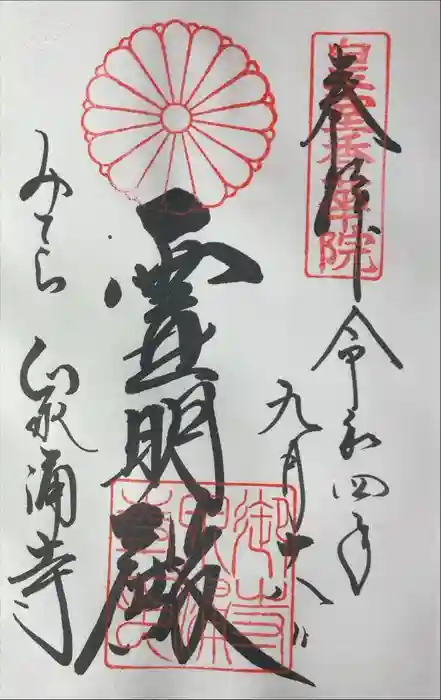 奉拝
皇室香華院
令和四年
九月十八日
霊明殿
みてら
泉涌寺